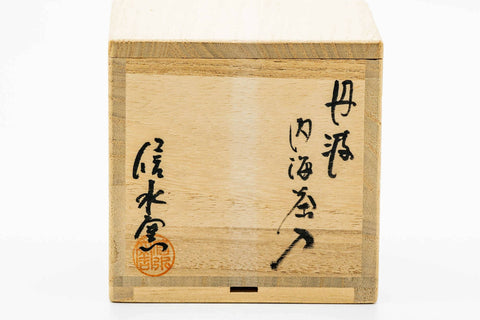 丹波
内海茶入
信水窯